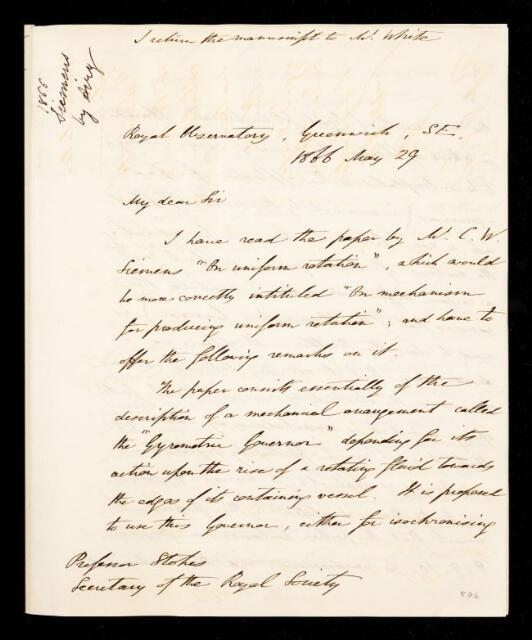 I return the manuscript to Mr. White
Siemens
by Airy
Royal Observatory, Greenwich, S.E.
1866 May 29
My dear Sir
I have read the paper by Mr. C. W.
Siemens "On uniform rotation", which would
be more correctly intituled "On mechanism
for producing uniform rotation"; and have to
offer the following remarks on it.
The paper consists essentially of the
description of a mechanical arrangement called
the "Gyrometric Governor" depending for its
action upon the rise of a rotating fluid towards
the edges of its containing vessel. It is proposed
to use this Governor, either for isochronising
Professor Stokes
Secretary of the Royal Society